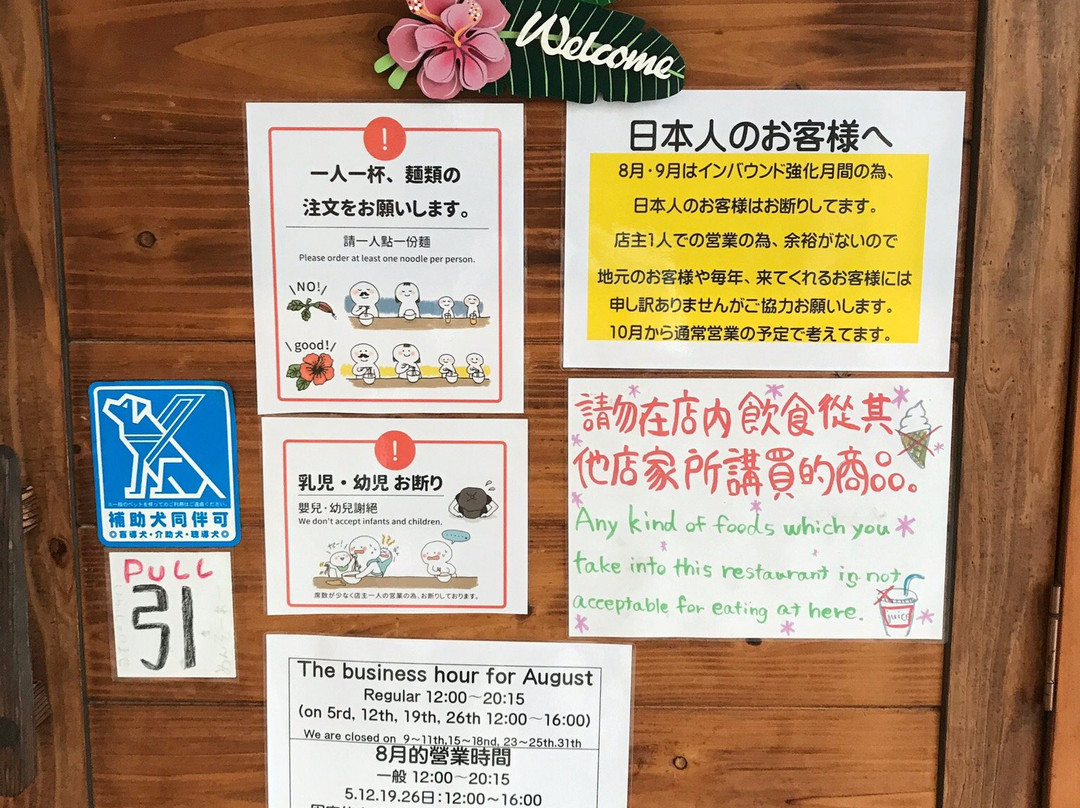 Welcome
!
一人一杯、麺類の
注文をお願いします。
請一人點一份麵
Please order at least one noodle per person.
NO!
good!
日本人のお客様へ
8月・9月はインバウンド強化月間の為、
日本人のお客様はお断りしてます。
店主1人での営業の為、余裕がないので
地元のお客様や毎年、来てくれるお客様には
申し訳ありませんがご協力お願いします。
10月から通常営業の予定で考えてます。
!
乳児・幼児 お断り
嬰兒·幼兒謝絕
We don't accept infants and children.
席数が少なく店主一人の営業の為、お断りしております。
請勿在店内飲食從其
他店家所講買的商品。
Any kind of foods which you
take into this restaurant is not
acceptable for eating at here.
JUICE
補助犬同伴可
◎盲導犬・介助犬・聴導犬◎
PULL
引
The business hour for August
Regular 12:00～20:15
(on 5rd, 12th, 19th, 26th 12:00～16:00)
We are closed on 9～11th.15～18nd, 23～25th.31th
8月的營業時間
一般 12:00～20:15
5.12.19.26日：12:00～16:00